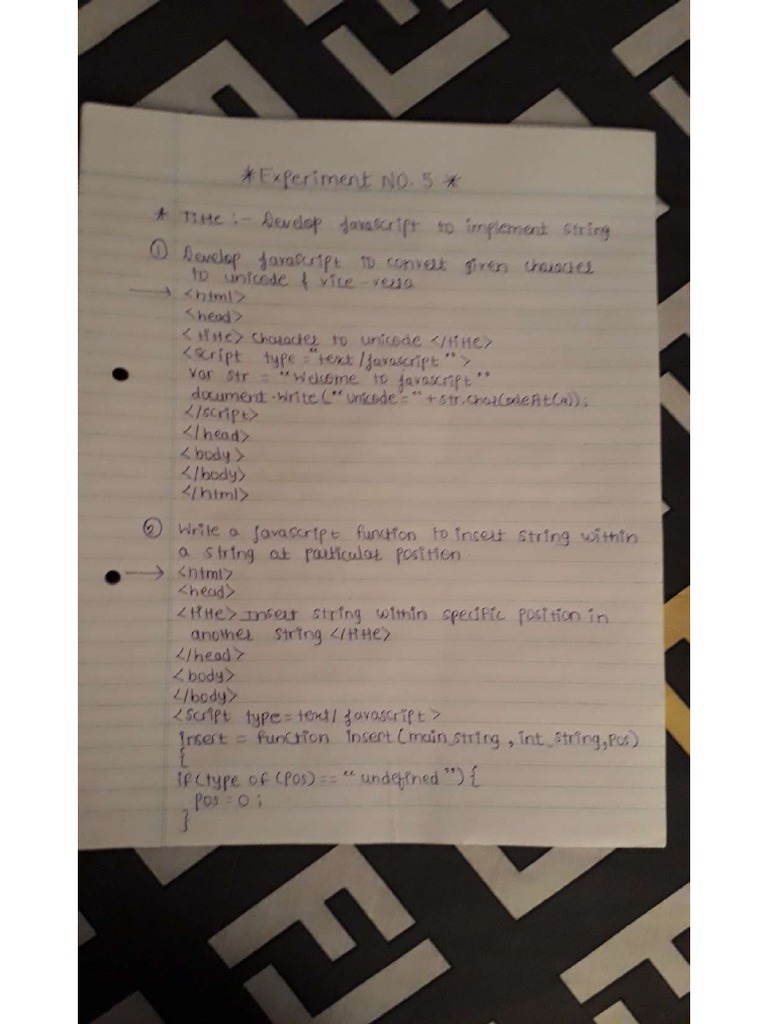 *Experiment NO. 5 *
* Title :- Develop Javascript to implement string
① Develop Javascript to convert given character
to unicode & vice-versa
→ <html>
<head>
<title> Character to unicode </title>
<script type="text/javascript">
var str = "Welcome to javascript"
document.write("unicode=" + str.charCodeAt());
</script>
</head>
<body>
</body>
</html>
② Write a Javascript function to insert string within
a string at particular position.
→ <html>
<head>
<title> Insert string within specific position in
another string </title>
</head>
<body>
</body>
<script type=text/javascript>
Insert = function Insert(main_string, int_string, pos)
{
if(type of (pos) == "undefined") {
pos = 0;
}